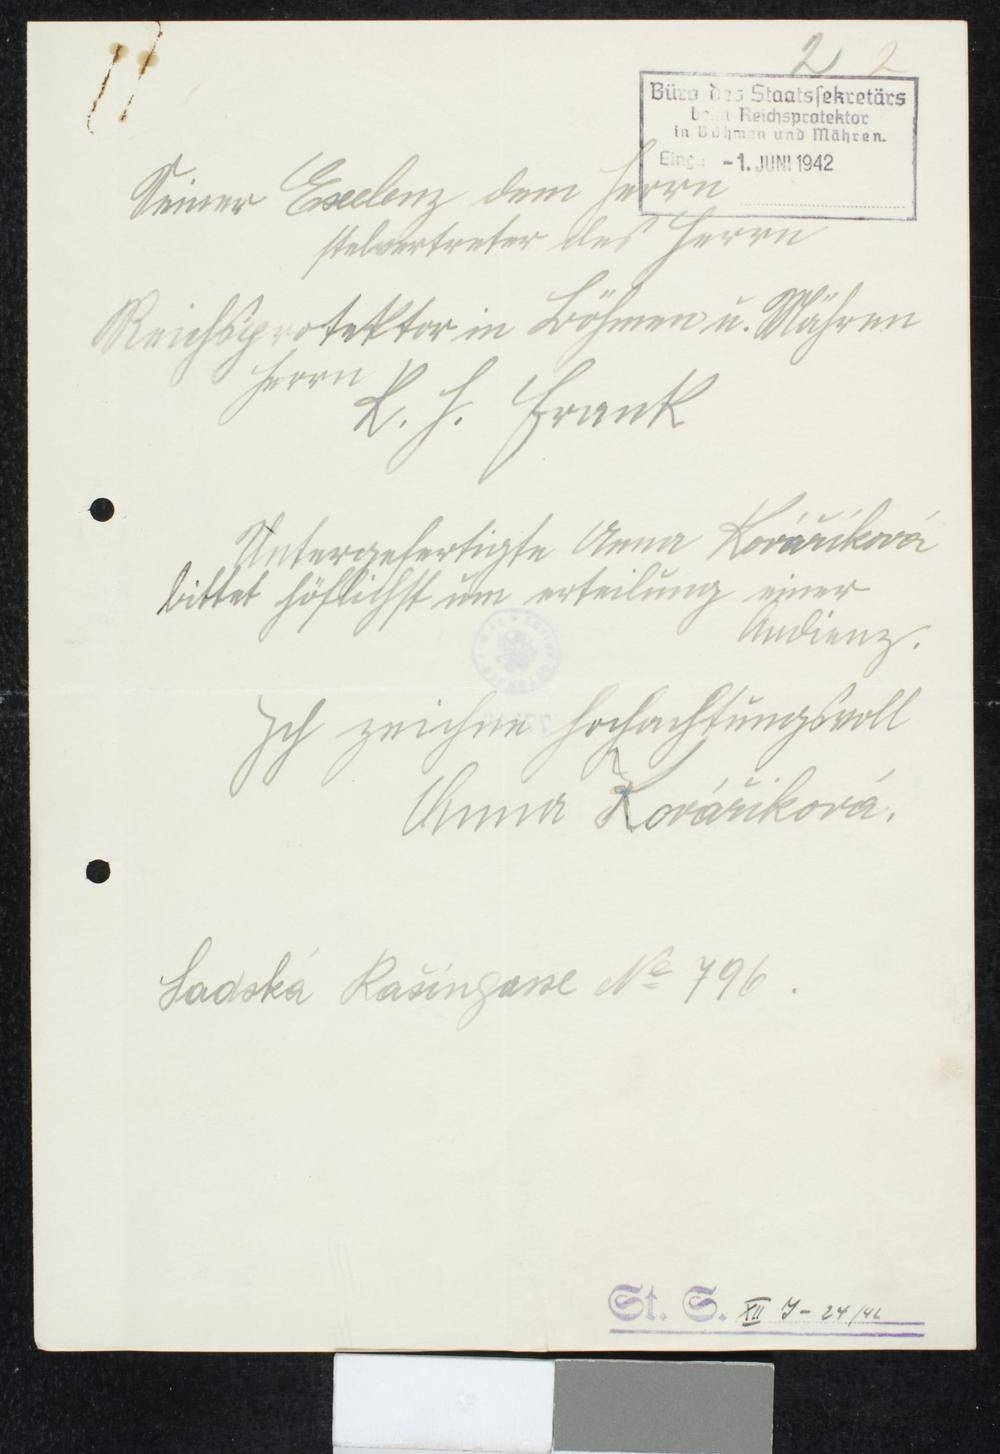 2 2
Büro des Staatssekretärs
beim Reichsprotektor
in Böhmen und Mähren.
Eing.: -1. JUNI 1942
Seiner Exelenz dem Herrn
stelvertreter des Herrn
Reichsprotektor in Böhmen u. Mähren
Herrn
K. H. Frank
Untergefertigte Anna Kovářiková
bittet höflichst um erteilung einer
Audienz.
Ich zeichne hochachtungsvoll
Anna Kovářiková.
Sadská Rašingasse No 796.
St. S. XII J - 24/42